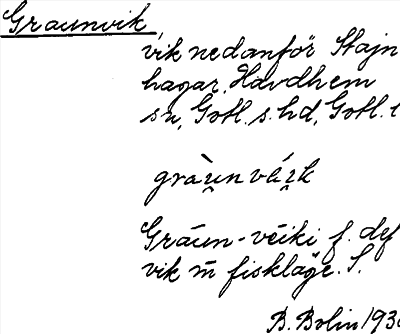 Graunvik,
vik nedanför Stajn
hagar, Havdhem
sn, Gotl. s. hd, Gotl. l
gràu̯n vái̯k
Gráun-véiki f. def
vik m̄ fiskläge. S.
B. Bolin 193